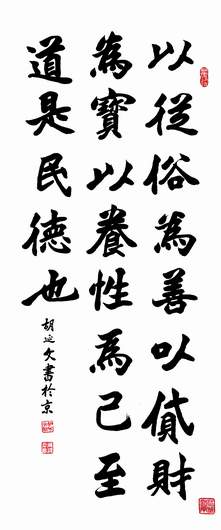 以從俗為善以貨財
為寶以養性為己至
道是民德也
胡延文書於京